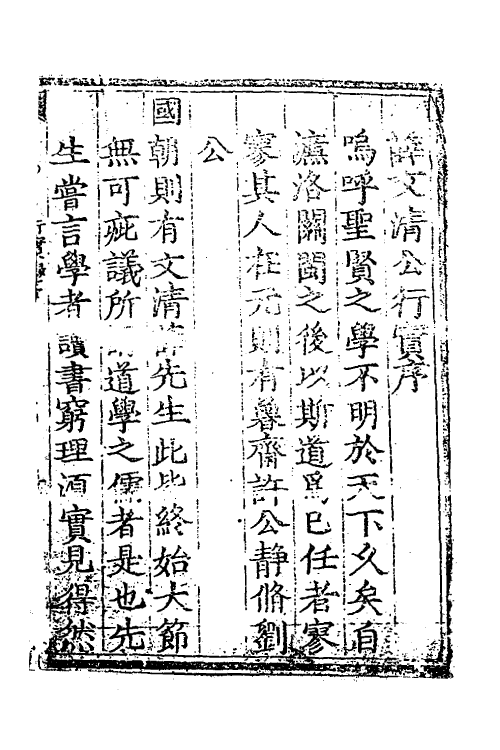 薛文清公行實序
嗚呼聖賢之學不明於天下久矣自
濂洛關閩之後以斯道爲已任者寥
寥其人在元則有魯齋許公静脩劉
公
國朝則有文清薛先生此皆終始大節
無可疵議所謂道學之儒者是也先
生嘗言學者讀書窮理須實見得然